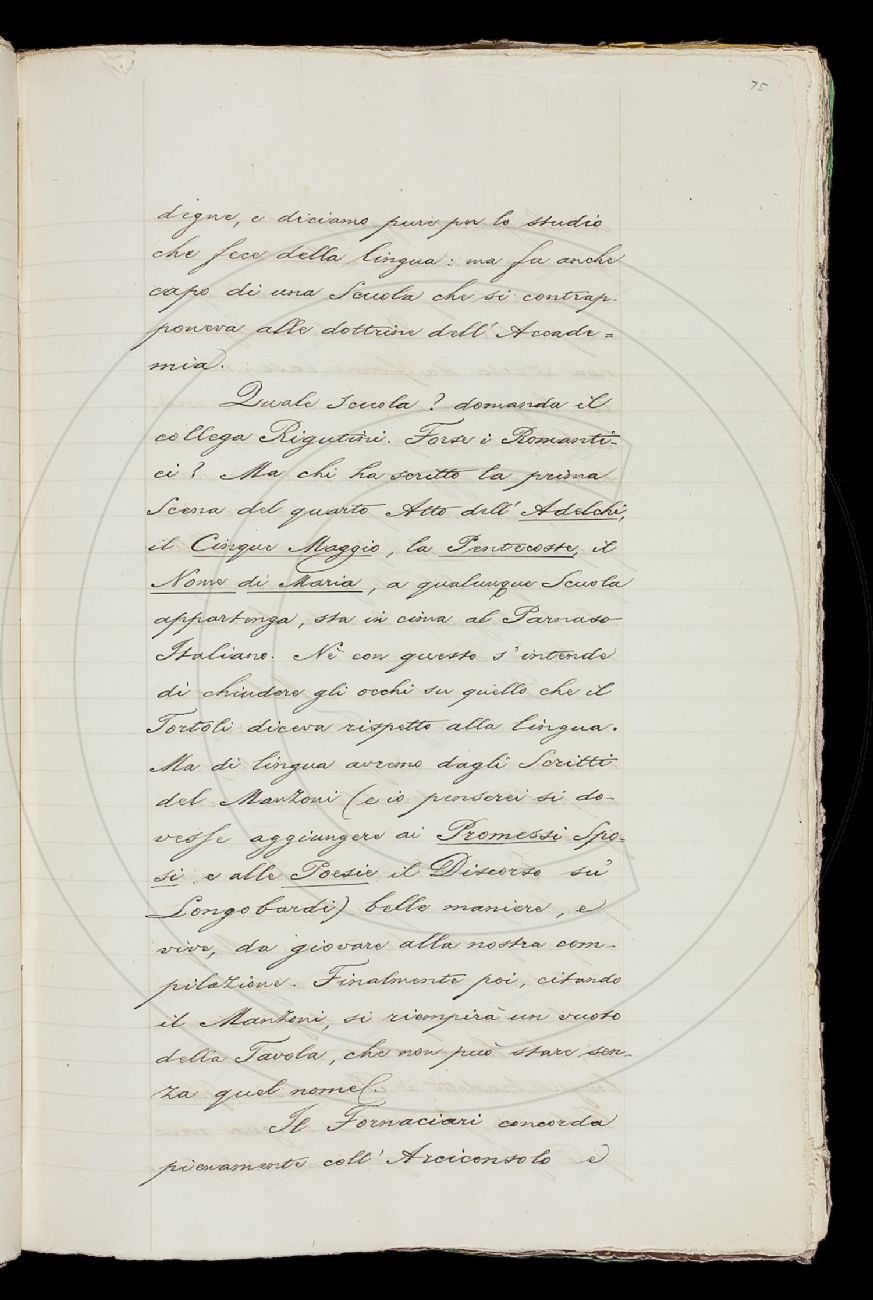 75
degne, e diciamo pure per lo studio
che fece della lingua: ma fu anche
capo di una Scuola che si contrap-
poneva alle dottrine dell' Accade=
mia.
Quale scuola? domanda il
collega Rigutini. Forse i Romanti-
ci? Ma chi ha scritto la prima
Scena del quarto Atto dell' Adelchi,
il Cinque Maggio, la Pentecoste, il
Nome di Maria, a qualunque Scuola
appartenga, sta in cima al Parnaso
Italiano. Nè con questo s'intende
di chiudere gli occhi su quello che il
Tortoli diceva rispetto alla lingua.
Ma di lingua avremo dagli Scritti
del Manzoni (e io penserei si do-
vesse aggiungere ai Promessi Spo-
si e alle Poesie il Discorso su'
Longobardi) belle maniere, e
vive, da giovare alla nostra com-
pilazione. Finalmente poi, citando
il Manzoni, si riempirà un vuoto
della Tavola, che non può stare sen-
za quel nome.
Il Fornaciari concorda
pienamente coll' Arciconsolo e